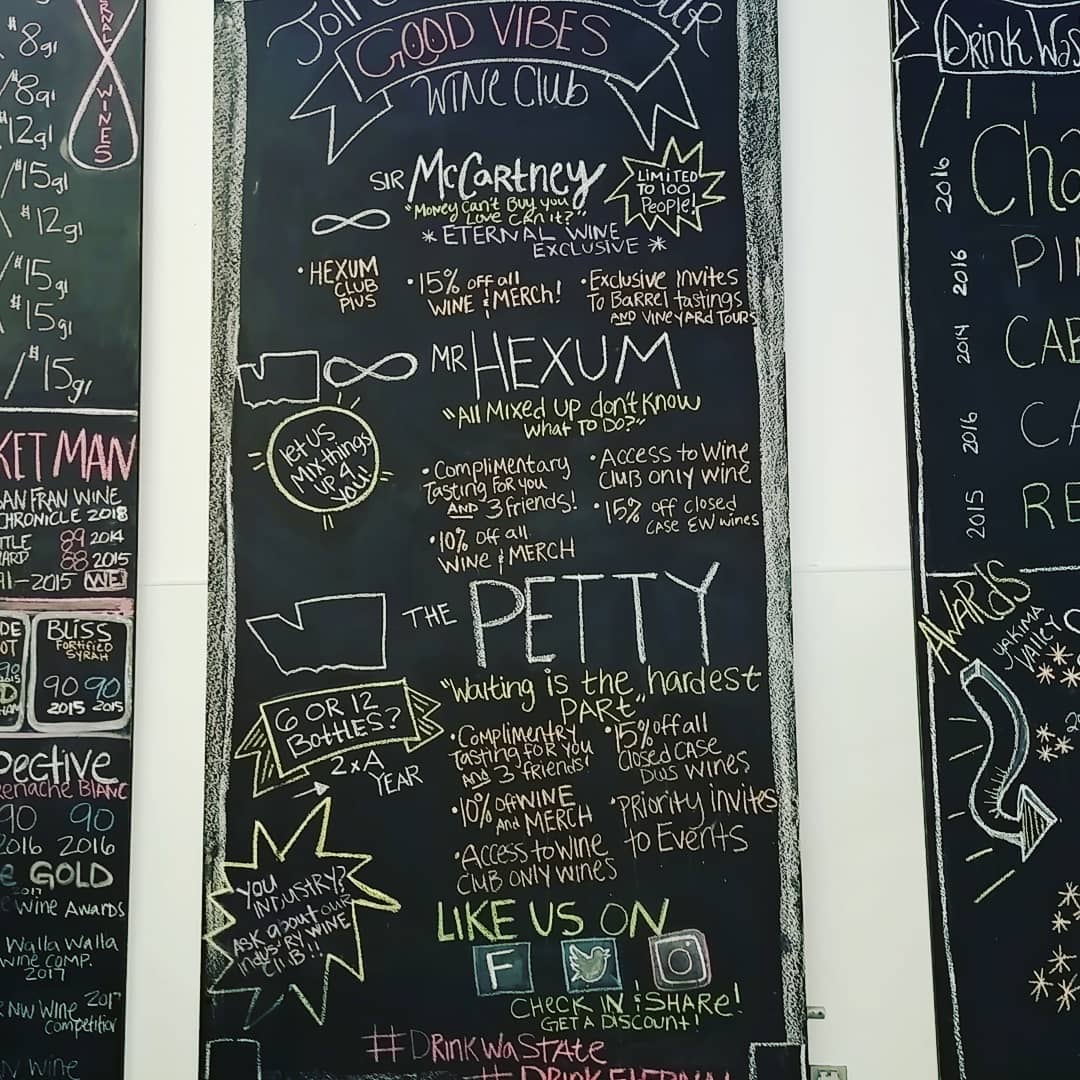 $8gl
/$8gl
$12gl
/$15gl
$12gl
/$15gl
$15gl
/$15gl
WINES
KET MAN
SAN FRAN WINE
CHRONICLE 2018
89 2014
88 2015
2015 WE
BLISS
FORTIFIED
SYRAH
90 90
2015 2015
90 90
2016 2016
GOLD
2017
Wine Awards
Walla Walla
Wine COMP.
2017
NW Wine 2017
Competition
Wine
Join
GOOD VIBES
WINE Club
SIR McCartney
"Money Can't Buy you
Love Can it?"
LIMITED
TO 100
People!
* ETERNAL WINE
EXCLUSIVE *
• HEXUM
CLUB
PLUS
• 15% off all
WINE & MERCH!
• Exclusive Invites
To Barrel tastings
AND VINEYARD TOURS
MR HEXUM
"All Mixed Up don't Know
What TO DO?"
let us
Mix things
up 4
you!
• Complimentary
Tasting FOR you
AND 3 friends!
• 10% off all
WINE & MERCH
• Access to Wine
Club only wine
• 15% off closed
CASE EW wines
THE PETTY
"Waiting is the hardest
PART"
6 OR 12
BOTTLES?
→ 2xA
YEAR
• Complimentry
Tasting for you
And 3 friends!
• 10% off WINE
And MERCH
• Access to wine
Club only wines
• 15% off all
Closed CASE
DWS WINES
• Priority invites
to Events
YOU
INDUSTRY?
ASK about our
industry WINE
CLUB!!
LIKE US ON
F
CHECK IN & SHARE!
GET A DISCOUNT!
#DRINKWASTATE
#DRINKETERNAL
Drink Was
2016 Cha
2016 PI
2014 CAB
2016 CA
2015 RE
AWARDS
YAKIMA
VALLEY